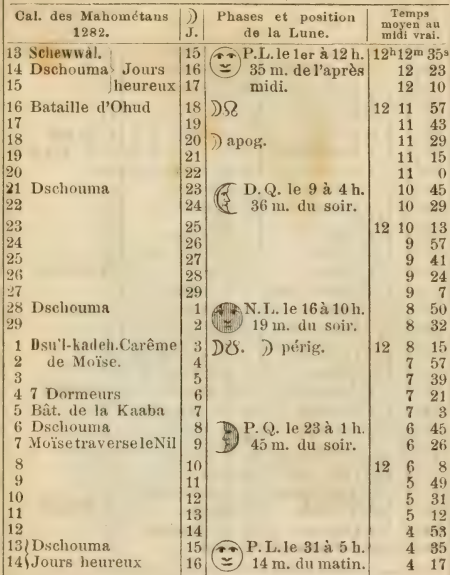 Cal. des Mahométans ☽ Phases et position Temps
1282. J. de la Lune. moyen au midi vrai.
13 Schewwâl. 15 P.L. le 1er à 12 h. 12h 12m 35s
14 Dschouma Jours 16 35 m. de l'après 12 23
15 heureux 17 midi. 12 10
16 Bataille d'Ohud 18 ☽☊ 12 11 57
17 19 11 43
18 20 ☽ apog. 11 29
19 21 11 15
20 22 11 0
21 Dschouma 23 D. Q. le 9 à 4 h. 10 45
22 24 36 m. du soir. 10 29
23 25 12 10 13
24 26 9 57
25 27 9 41
26 28 9 24
27 29 9 7
28 Dschouma 1 N. L. le 16 à 10 h. 8 50
29 2 19 m. du soir. 8 32
1 Dsu'l-kadeh. Carême 3 ☽☋. ☽ périg. 12 8 15
2 de Moïse. 4 7 57
3 5 7 39
4 7 Dormeurs 6 7 21
5 Bât. de la Kaaba 7 7 3
6 Dschouma 8 P. Q. le 23 à 1 h. 6 45
7 Moïse traverse le Nil 9 45 m. du soir. 6 26
8 10 12 6 8
9 11 5 49
10 12 5 31
11 13 5 12
12 14 4 53
13 Dschouma 15 P. L. le 31 à 5 h. 4 35
14 Jours heureux 16 14 m. du matin. 4 17